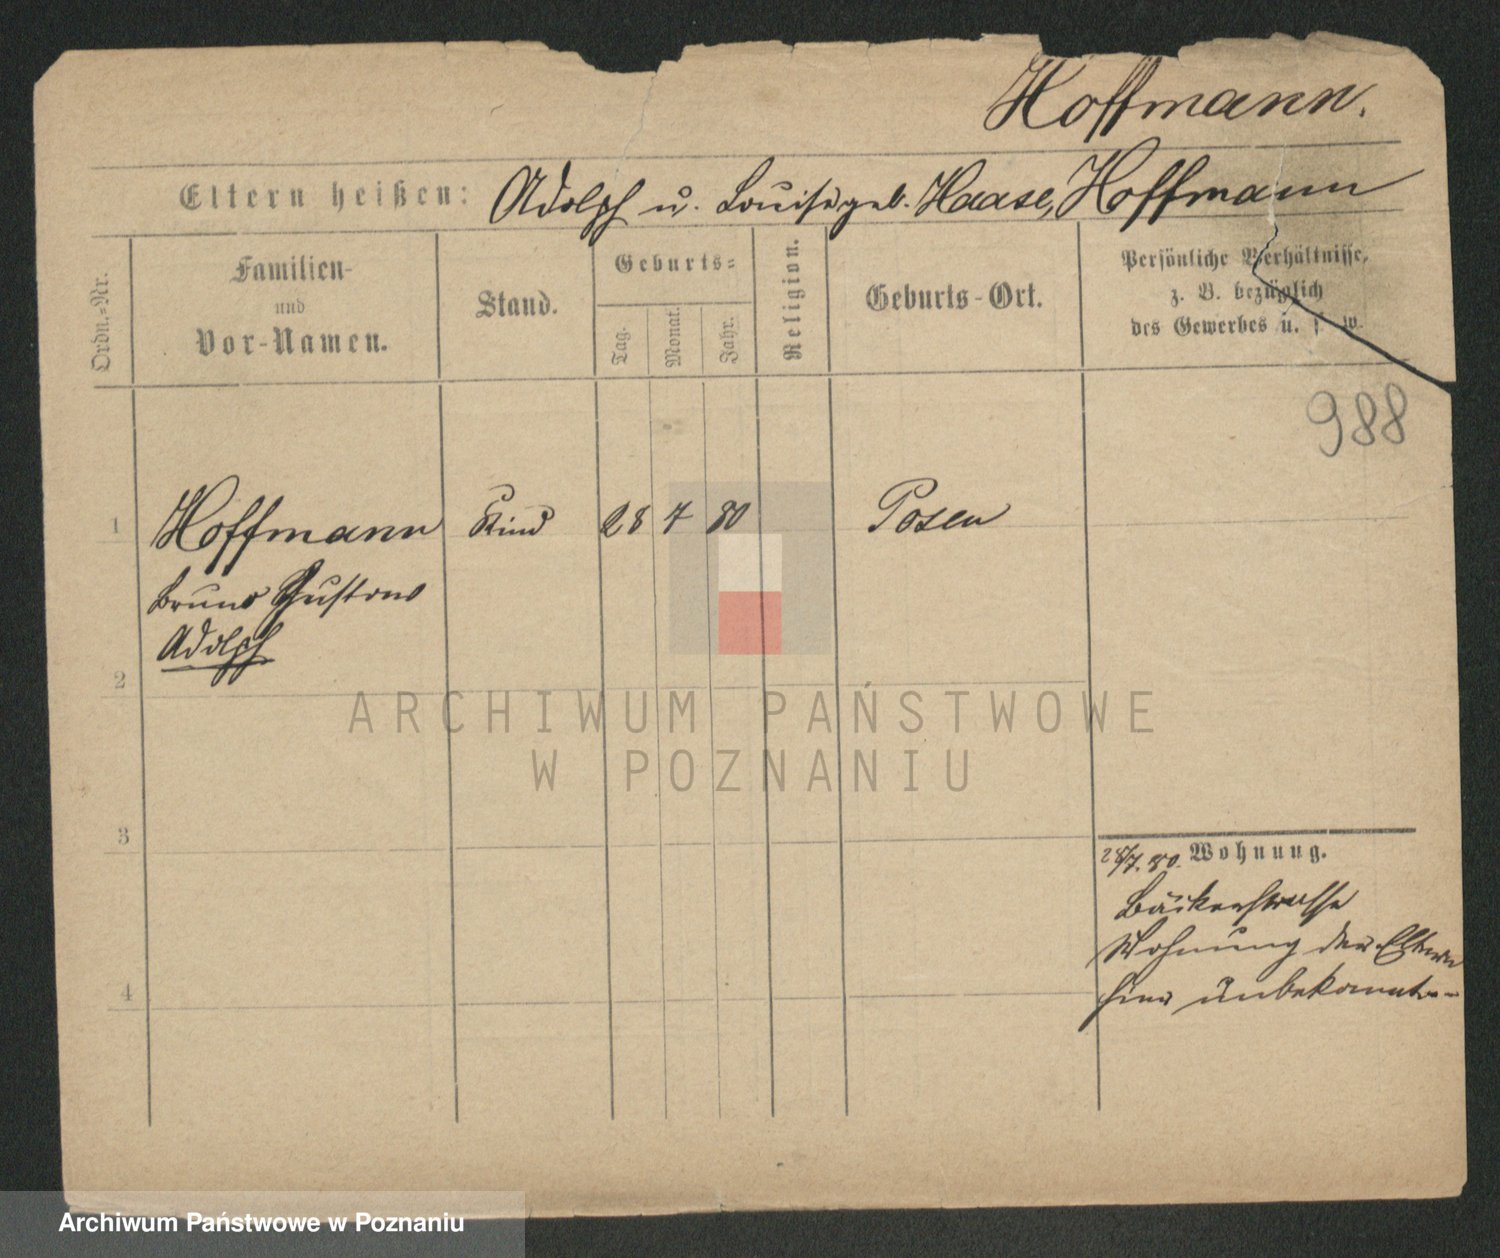 Hoffmann.
Eltern heißen: Adolph u. Louise geb. Haase, Hoffmann
Ordn.-Nr.
Familien-
und
Vor-Namen.
Stand.
Geburts-
Tag.
Monat.
Jahr.
Religion.
Geburts-Ort.
Persönliche Verhältnisse,
z. B. bezüglich
des Gewerbes u. s. w.
988
1 Hoffmann Kind 28 7 80 Posen
Bruno Gustav
Adolph
2
ARCHIWUM PAŃSTWOWE
W POZNANIU
3
28/7. 80. Wohnung.
Bäckerstrasse
Wohnung der Eltern
hier unbekannt
4
Archiwum Państwowe w Poznaniu